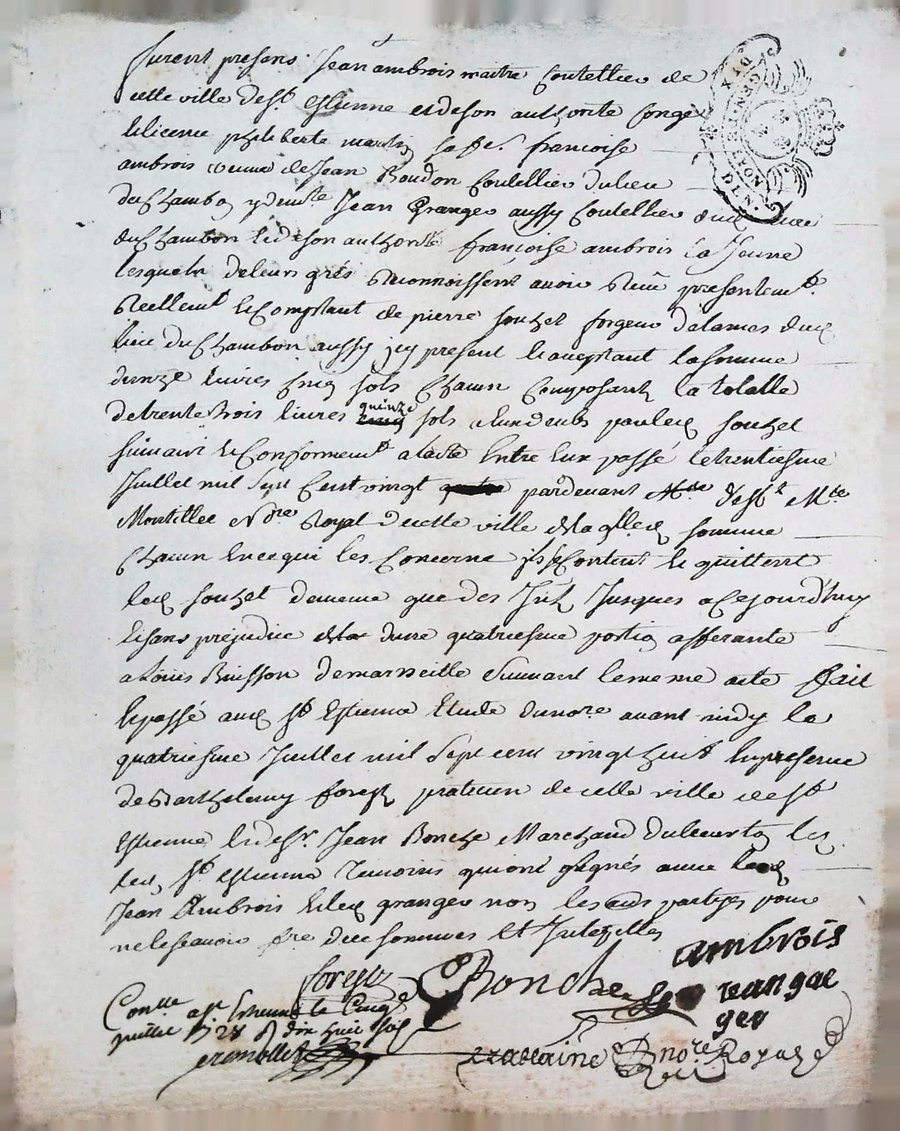 furent presens Jean ambrois maitre Coutellier de
cette ville de St Estienne et de son authorité Conge
et licence philiberte martin sa fe. francoise
ambrois veuve de Jean Boudon Coutellier du lieu
du Chambon Jean Granger aussy Coutellier dud lieu
du Chambon et de son authorité francoise ambrois la Jeune
lesquels de leurs grés reconnoissent avoir receu presentemt
reellemt et Comptant de pierre souzet forgeur de lames dud
lieu du Chambon aussy icy present et acceptant la somme
d'unze livres cinq sols Chacun Composant la totalle
de trente trois livres quinze sols a eux deubs par led souzet
suivant et Conformemt a l'acte Entre Eux passé le trentiesme
Juillet mil sept Cent vingt pardevant Me
Montellier Nore Royal de cette ville de laqlle somme
Chacun en ce qui les Concerne ils se Contentent et quittent
led souzet de meme que des Intz Jusques a ce jourd'huy
et sans prejudice de la quatriesme portion afferante
a Louis Buisson de marseille suivant le meme acte fait
et passé aud St Estienne Etude du nore avant midy le
quatriesme Juillet mil sept cent vingt huit En presence
de Barthelemy forest praticien de cette ville de St
Estienne et de sr. Jean Ronche Marchand
St Estienne Temoins qui ont signés avec led
Jean Ambrois et led granger non les aud partyes pour
ne le scavoir de ce sommes Et Interpellés
ambrois
forest Ronche Jean gran
ger
Conlle a St Estienne le Cinq
Juillet 1728 R dix huit sols
nore Royal
DU
NOTARIAT
DIX